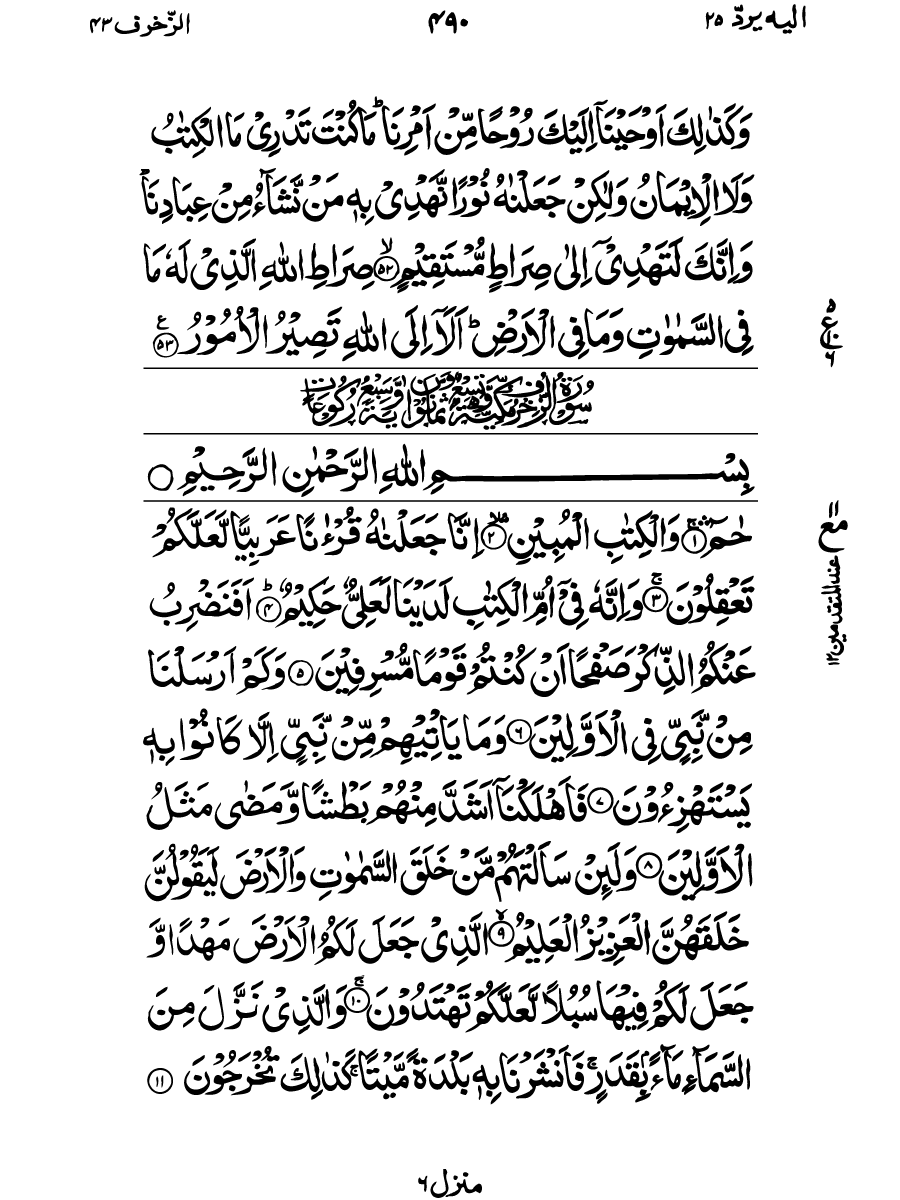 الیه یردّ ۲۵
۴۹۰
الزّخرف ۴۳
وَكَذٰلِكَ اَوْحَيْنَاۤ اِلَيْكَ رُوْحًا مِّنْ اَمْرِنَا ؕ مَا كُنْتَ تَدْرِىْ مَا الْكِتٰبُ
وَلَا الْاِيْمَانُ وَلٰكِنْ جَعَلْنٰهُ نُوْرًا نَّهْدِىْ بِهٖ مَنْ نَّشَآءُ مِنْ عِبَادِنَا ؕ
وَاِنَّكَ لَتَهْدِىْۤ اِلٰى صِرَاطٍ مُّسْتَقِيْمٍ ۙ‏﴿۵۲﴾ صِرَاطِ اللّٰهِ الَّذِىْ لَهٗ مَا
فِى السَّمٰوٰتِ وَمَا فِى الْاَرْضِ ؕ اَلَاۤ اِلَى اللّٰهِ تَصِيْرُ الْاُمُوْرُ ﴿۵۳﴾ ع
۵
ع
۶
سُوْرَةُ الزُّخْرُفِ مَكِّيَّةٌ وَّهِىَ تِسْعٌ وَّثَمَانُوْنَ اٰيَةً وَّسَبْعُ رُكُوْعَاتٍ
بِسْمِ اللّٰهِ الرَّحْمٰنِ الرَّحِيْمِ ○
حٰمٓ ۚۛ‏﴿۱﴾ وَالْكِتٰبِ الْمُبِيْنِ ۙۛ‏﴿۲﴾ اِنَّا جَعَلْنٰهُ قُرْءٰنًا عَرَبِيًّا لَّعَلَّكُمْ
تَعْقِلُوْنَ ۚ‏﴿۳﴾ وَاِنَّهٗ فِىْۤ اُمِّ الْكِتٰبِ لَدَيْنَا لَعَلِىٌّ حَكِيْمٌ ؕ‏﴿۴﴾ اَفَنَضْرِبُ
عَنْكُمُ الذِّكْرَ صَفْحًا اَنْ كُنْتُمْ قَوْمًا مُّسْرِفِيْنَ ﴿۵﴾ وَكَمْ اَرْسَلْنَا
مِنْ نَّبِىٍّ فِى الْاَوَّلِيْنَ ﴿۶﴾ وَمَا يَاْتِيْهِمْ مِّنْ نَّبِىٍّ اِلَّا كَانُوْا بِهٖ
يَسْتَهْزِءُوْنَ ﴿۷﴾ فَاَهْلَكْنَاۤ اَشَدَّ مِنْهُمْ بَطْشًا وَّمَضٰى مَثَلُ
الْاَوَّلِيْنَ ﴿۸﴾ وَلَئِنْ سَاَلْتَهُمْ مَّنْ خَلَقَ السَّمٰوٰتِ وَالْاَرْضَ لَيَقُوْلُنَّ
خَلَقَهُنَّ الْعَزِيْزُ الْعَلِيْمُ ۙ‏﴿۹﴾ الَّذِىْ جَعَلَ لَكُمُ الْاَرْضَ مَهْدًا وَّ
جَعَلَ لَكُمْ فِيْهَا سُبُلًا لَّعَلَّكُمْ تَهْتَدُوْنَ ۚ‏﴿۱۰﴾ وَالَّذِىْ نَزَّلَ مِنَ
السَّمَآءِ مَآءًۢ بِقَدَرٍ ۚ فَاَنْشَرْنَا بِهٖ بَلْدَةً مَّيْتًا ۚ كَذٰلِكَ تُخْرَجُوْنَ ﴿۱۱﴾
۱۱
مع
عند المتقدمین ۱۲
منزل ۶